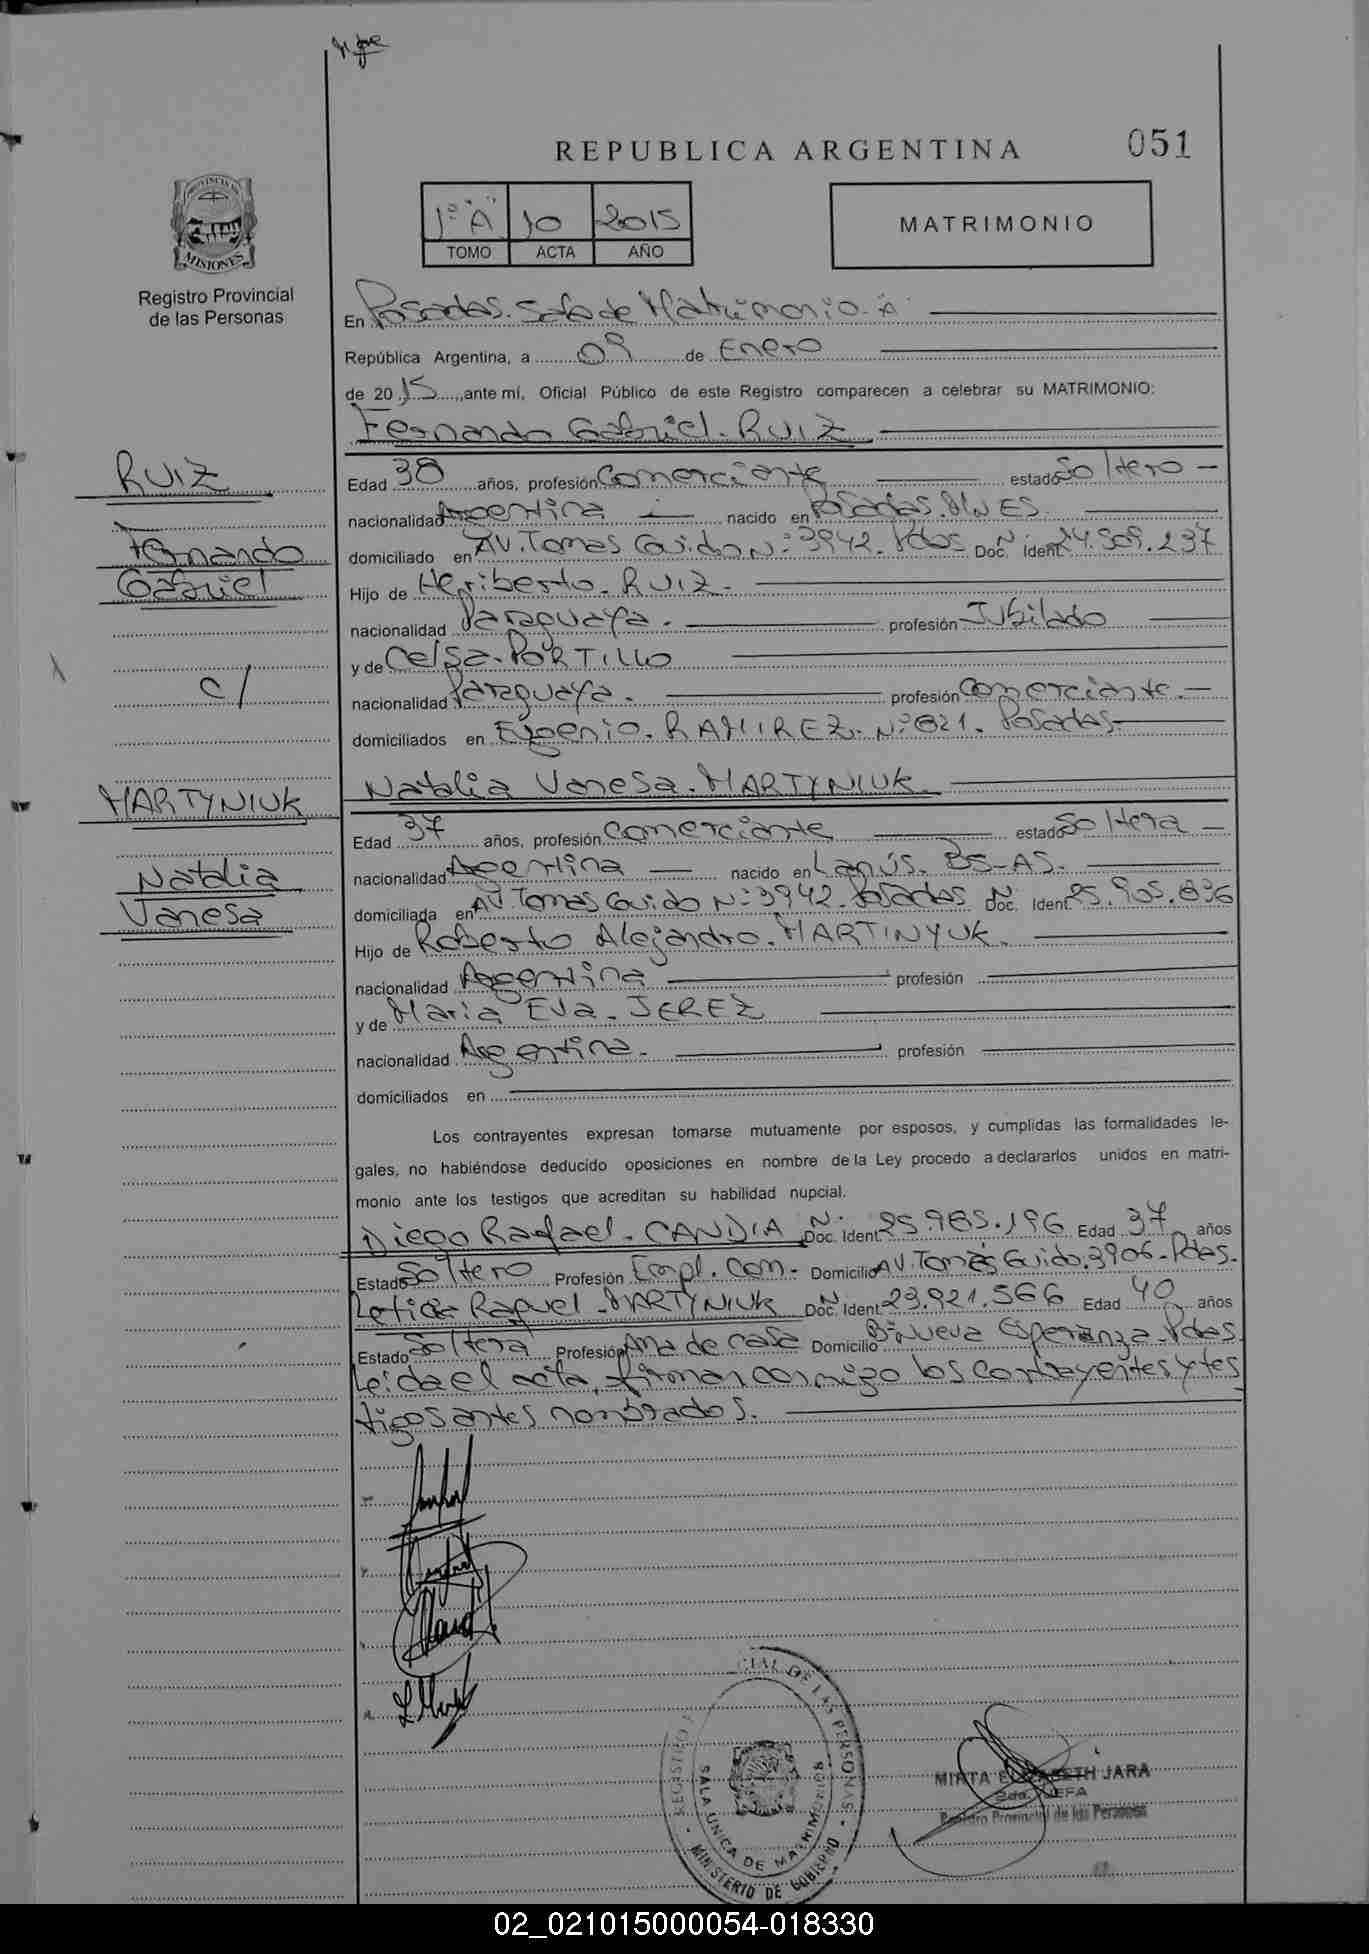 REPUBLICA ARGENTINA
051
PROVINCIA DE
MISIONES
Registro Provincial
de las Personas
1º "A" 10 2015
TOMO ACTA AÑO
MATRIMONIO
En Posadas. Sala de Matrimonio. A
República Argentina, a 09 de Enero
de 2015, ante mí, Oficial Público de este Registro comparecen a celebrar su MATRIMONIO:
Fernando Gabriel. RUIZ
RUIZ
Fernando
Gabriel
c/
MARTYNIUK
Natalia
Vanesa
Edad 38 años, profesión Comerciante estado Soltero
nacionalidad Argentina nacido en Posadas. MNES.
domiciliado en AV. Tomas Guido Nº 3942. Pdas Doc. Ident. Nº 24.509.237
Hijo de Heriberto. RUIZ.
nacionalidad Paraguaya. profesión Jubilado
y de Celsa. PORTILLO
nacionalidad Paraguaya. profesión Comerciante.
domiciliados en Eugenio. RAMIREZ. Nº 821. Posadas.
Natalia Vanesa. MARTYNIUK.
Edad 37 años, profesión Comerciante estado Soltera
nacionalidad Argentina nacido en Lanús. BS-AS.
domiciliada en AV. Tomas Guido Nº 3942. Posadas Doc. Ident. Nº 25.905.836
Hijo de Roberto Alejandro. MARTINYUK.
nacionalidad Argentina profesión
y de Maria Eva. JEREZ
nacionalidad Argentina. profesión
domiciliados en
Los contrayentes expresan tomarse mutuamente por esposos, y cumplidas las formalidades le-
gales, no habiéndose deducido oposiciones en nombre de la Ley procedo a declararlos unidos en matri-
monio ante los testigos que acreditan su habilidad nupcial.
Diego Rafael. CANDIA Doc. Ident. Nº 25.985.196 Edad 37 años
Estado Soltero Profesión Empl. Com. Domicilio AV. Tomás Guido. 3906. Pdas.
Leticia Raquel. MARTYNIUK Doc. Ident. Nº 23.921.566 Edad 40 años
Estado Soltera Profesión Ama de casa Domicilio Bº Nueva Esperanza. Pdas.
Leida el acta, firman conmigo los contrayentes y tes
tigos antes nombrados.
REGISTRO PROVINCIAL DE LAS PERSONAS
SALA UNICA DE MATRIMONIOS
MINISTERIO DE GOBIERNO
MIRTA ELIZABETH JARA
2da. JEFA
Registro Provincial de las Personas
02_021015000054-018330